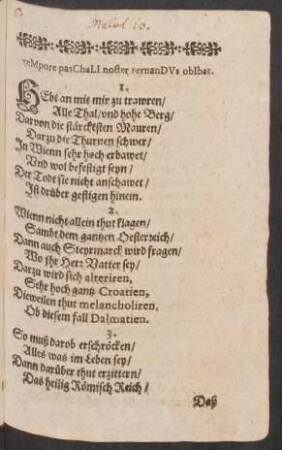 Melod io.
teMpore pasChaLI noster FernanDVs obIbat.
1.
HEbt an mit mir zu trawren/
Alle Thal/ vnd hohe Berg/
Darvon die stärcktsten Mauren/
Darzu die Thurnen schwer/
In Wienn sehr hoch erbawet/
Vnd wol befestigt seyn/
Der Todt sie nicht anschawet/
Ist drüber gestigen hinein.
2.
Wienn nicht allein thut klagen/
Sambt dem gantzen Oesterreich/
Dann auch Steyrmarck wird fragen/
Wo jhr Herr Vatter sey/
Darzu wird sich alteriren,
Sehr hoch gantz Croatien,
Dieweilen thut melancholiren,
Ob diesem fall Dalmatien.
3.
So muß darob erschröcken/
Alles was im Leben sey/
Dann darüber thut erzittern/
Das heilig Römisch Reich/
Daß